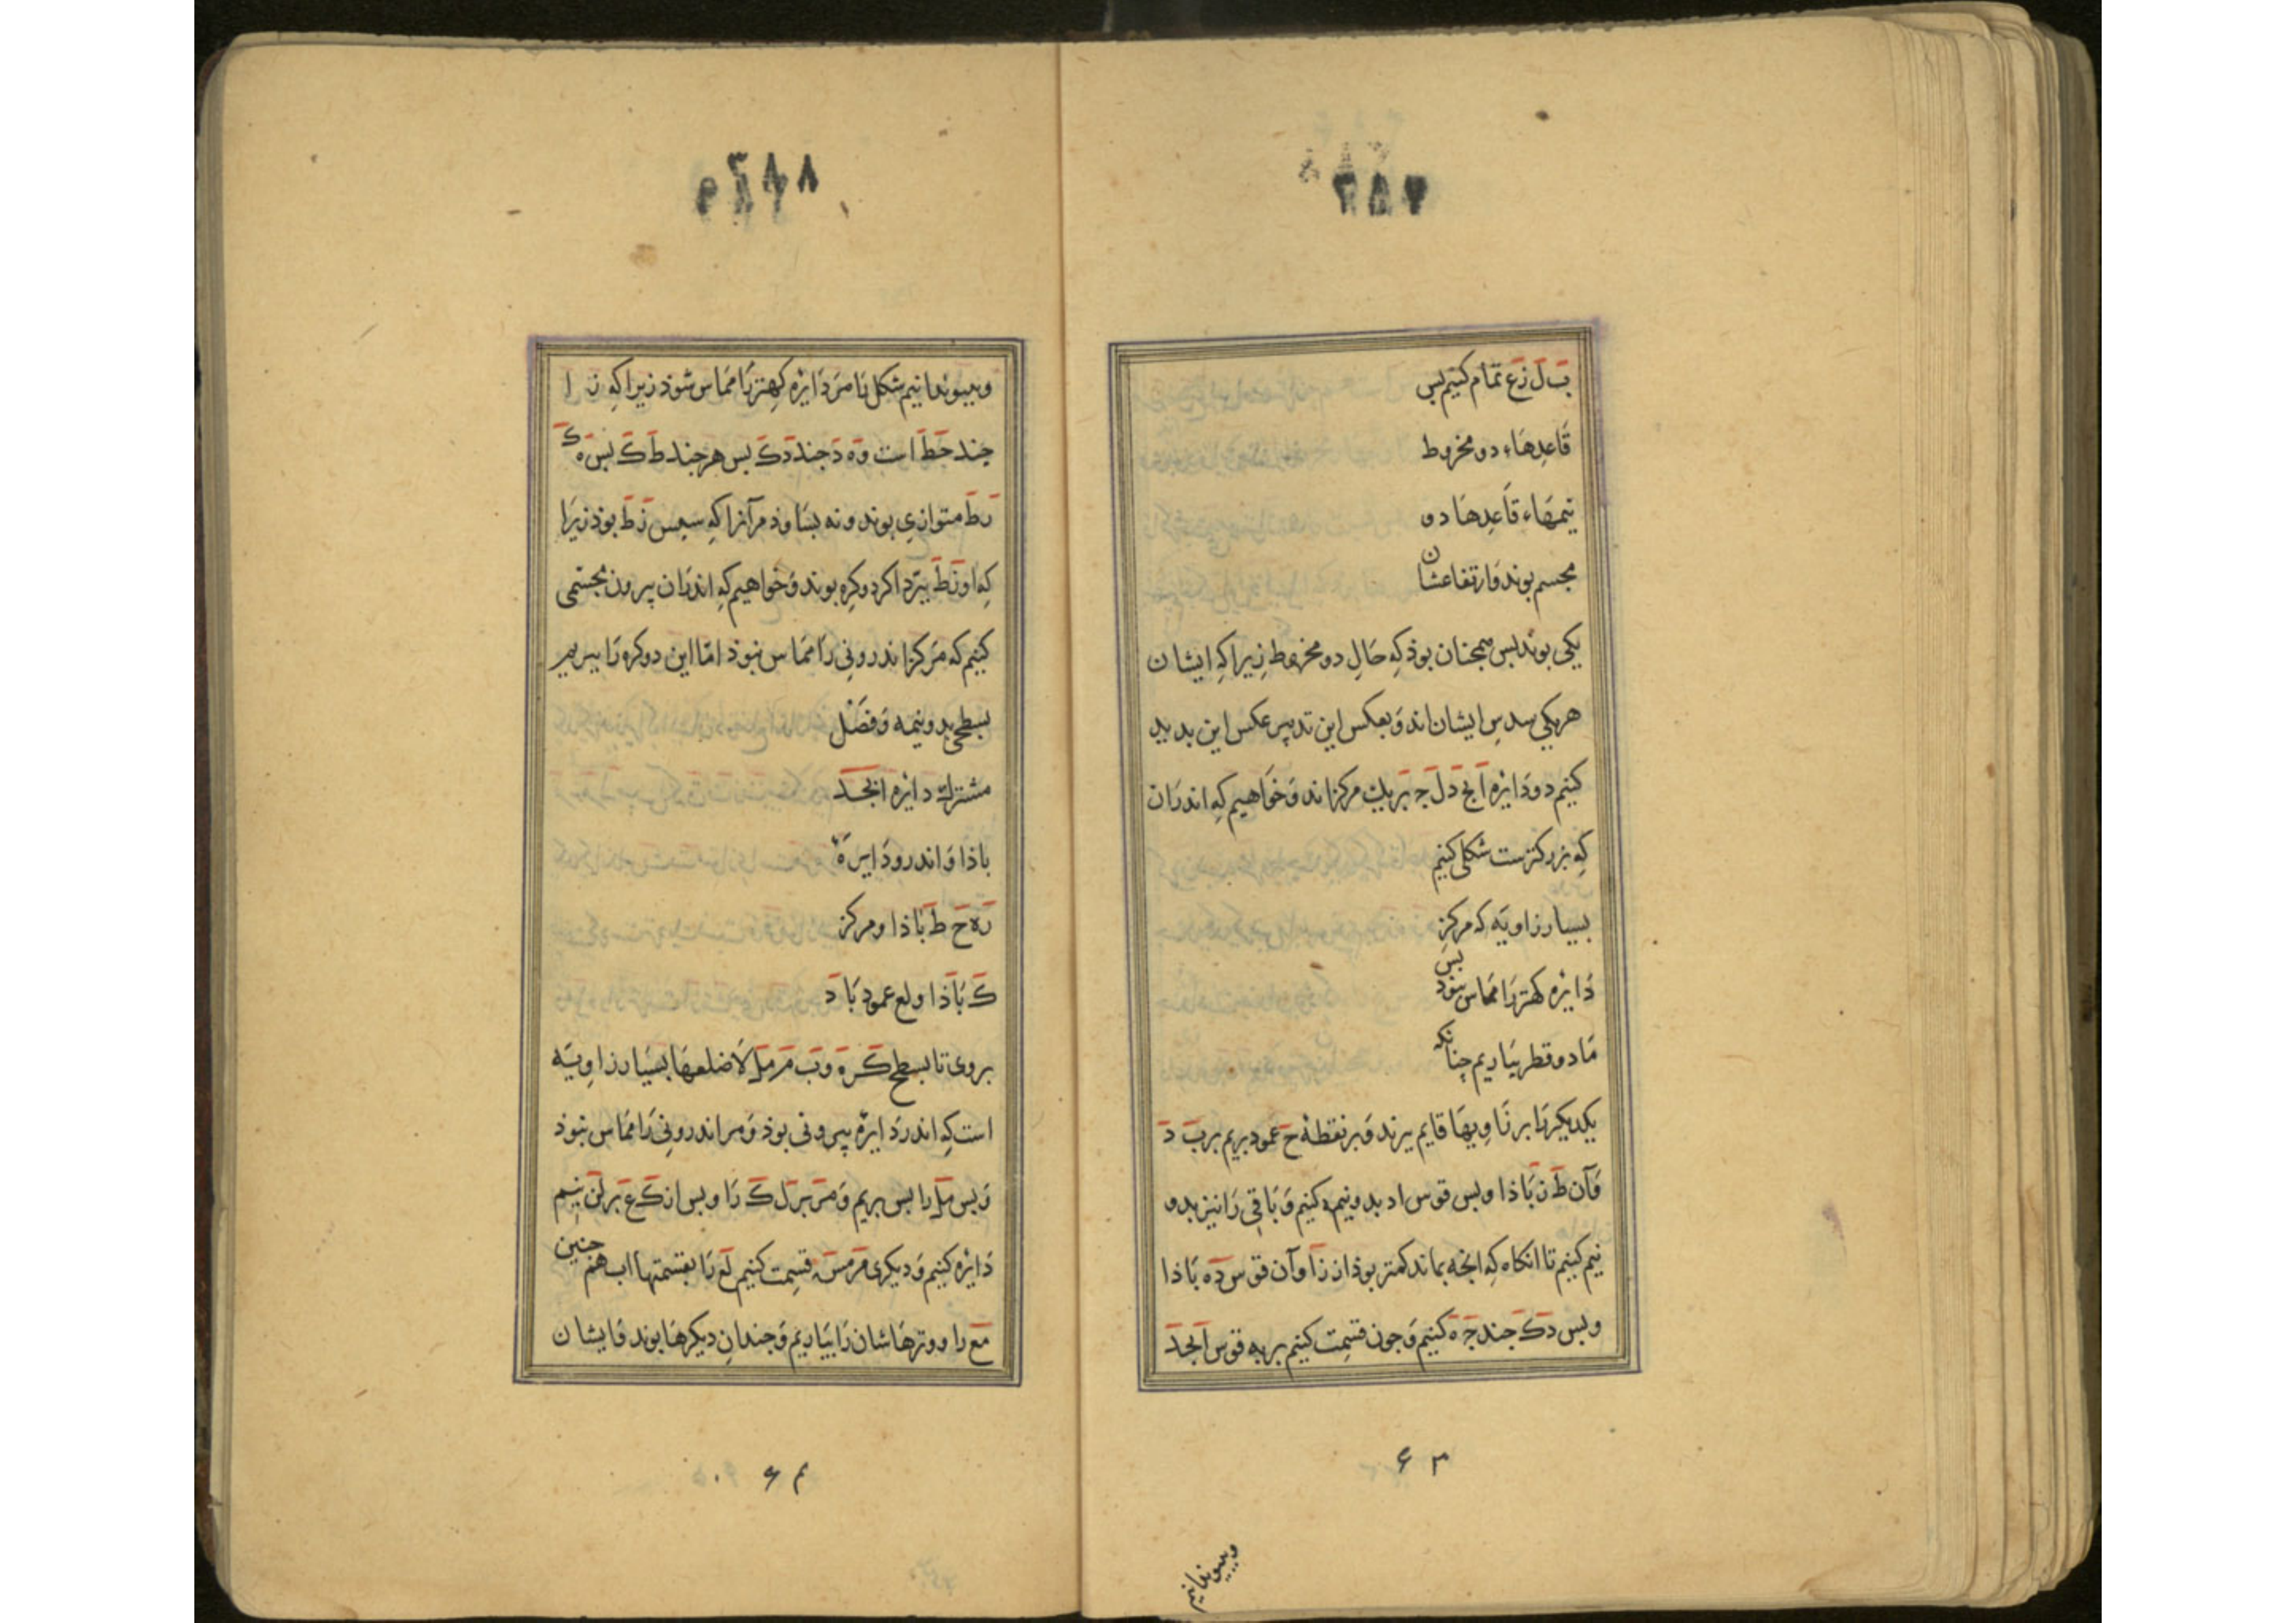 بَ لَ زَعَ تمام کنیم بس
قَاعِدهَاءِ دو مخروط
نیمهَاء قَاعِدهَا دو
مجسم بوند وَارتفاعشان
یکی بوند بس همجنان بوذ کِه حَالِ دو مخروط زیرا کِه ایشان
هریکی سدسِ ایشان اند وَ بعکس این تدبیر عکس این بدید
کنیم دو دَایْره اَبجَ دلَ جَ بَر یك مرکز اند وَ خوَاهیم کِه اندرَان
کِه بزرکترست شکلی کنیم
بسیار زاویَه که مرکزِ
دَایْره کهتر رَا ممَاس نبوَد بس
مَا دو قطر بیَاریم جنانکه
یکدیکر رَا بر زَاوِیهَا قایم ببرند وَ بر نقطهٔ حَ عمود بریم بر بَ دَ
وَآن طَ زَ بَاذا و بس قوس اد بدو نیمه کنیم وَ بَاقِی رَا نیز بدو
نیم کنیم تا انکاه کِه انجه بماند کمتر بوذ از زَا وَ آن قوس دَه بَاذا
و بس دکَ جند جَ هَ کنیم وَ جون قسِمت کنیم بر به قوس اَبجَد
٦٣
وبیبوندانیم
٢٨٨
وبیبوندانیم شکل تا مرَ دَایْره کِهتر رَا ممَاس شوَذ زیرا کِه زَ ا
جند حَطَ است وَهَ دَ جند دَکَ بس هر جند طَ کَ بس هَ کَ
رَ طَ متوازِي بوند و نه بسَاوذ مر آنرا کِه سبس زَ طَ بوذ زیرَا
کِه او زَ طَ ببرّد اکر دو کِره بوند وَ خواهیم کِه اندرَان بیرون مجسّمی
کنیم که مَرکز اندرونِی رَا ممَاس نبوذ امّا این دو کره رَا ببریم
بسطحی بدو نیمه وَ فصَْل
مشترك دایْره ابجَد
باذا وَ اندرو دَایرهَْ
رَه حَ طَ بَاذا و مرکز
کَ بَاذا و لع عمود بَا دَ
بروی تا بسطح کَره وَ بَ مرَ ملَ لَا ضلعهَا بسیَار زاوِیَه
است کِه اندر دَایْره بیرونی بوذ وَ مر اندرونِی رَا ممَاس نبوَذ
وَ بس ملَ را بس بریم وَ مرَ بر لَ کَ رَا و بس از کَ عَ بر لن نیم
دَایْره کنیم وَ دیکری مر مسَ قسِمت کنیم لَعَ رَا بقسمتهَا اب هم جنین
مَعَ را و وترهَاشان رَا بیَاریم وَ جندانِ دیکرهَا بوند وَ ایشان
٦۴